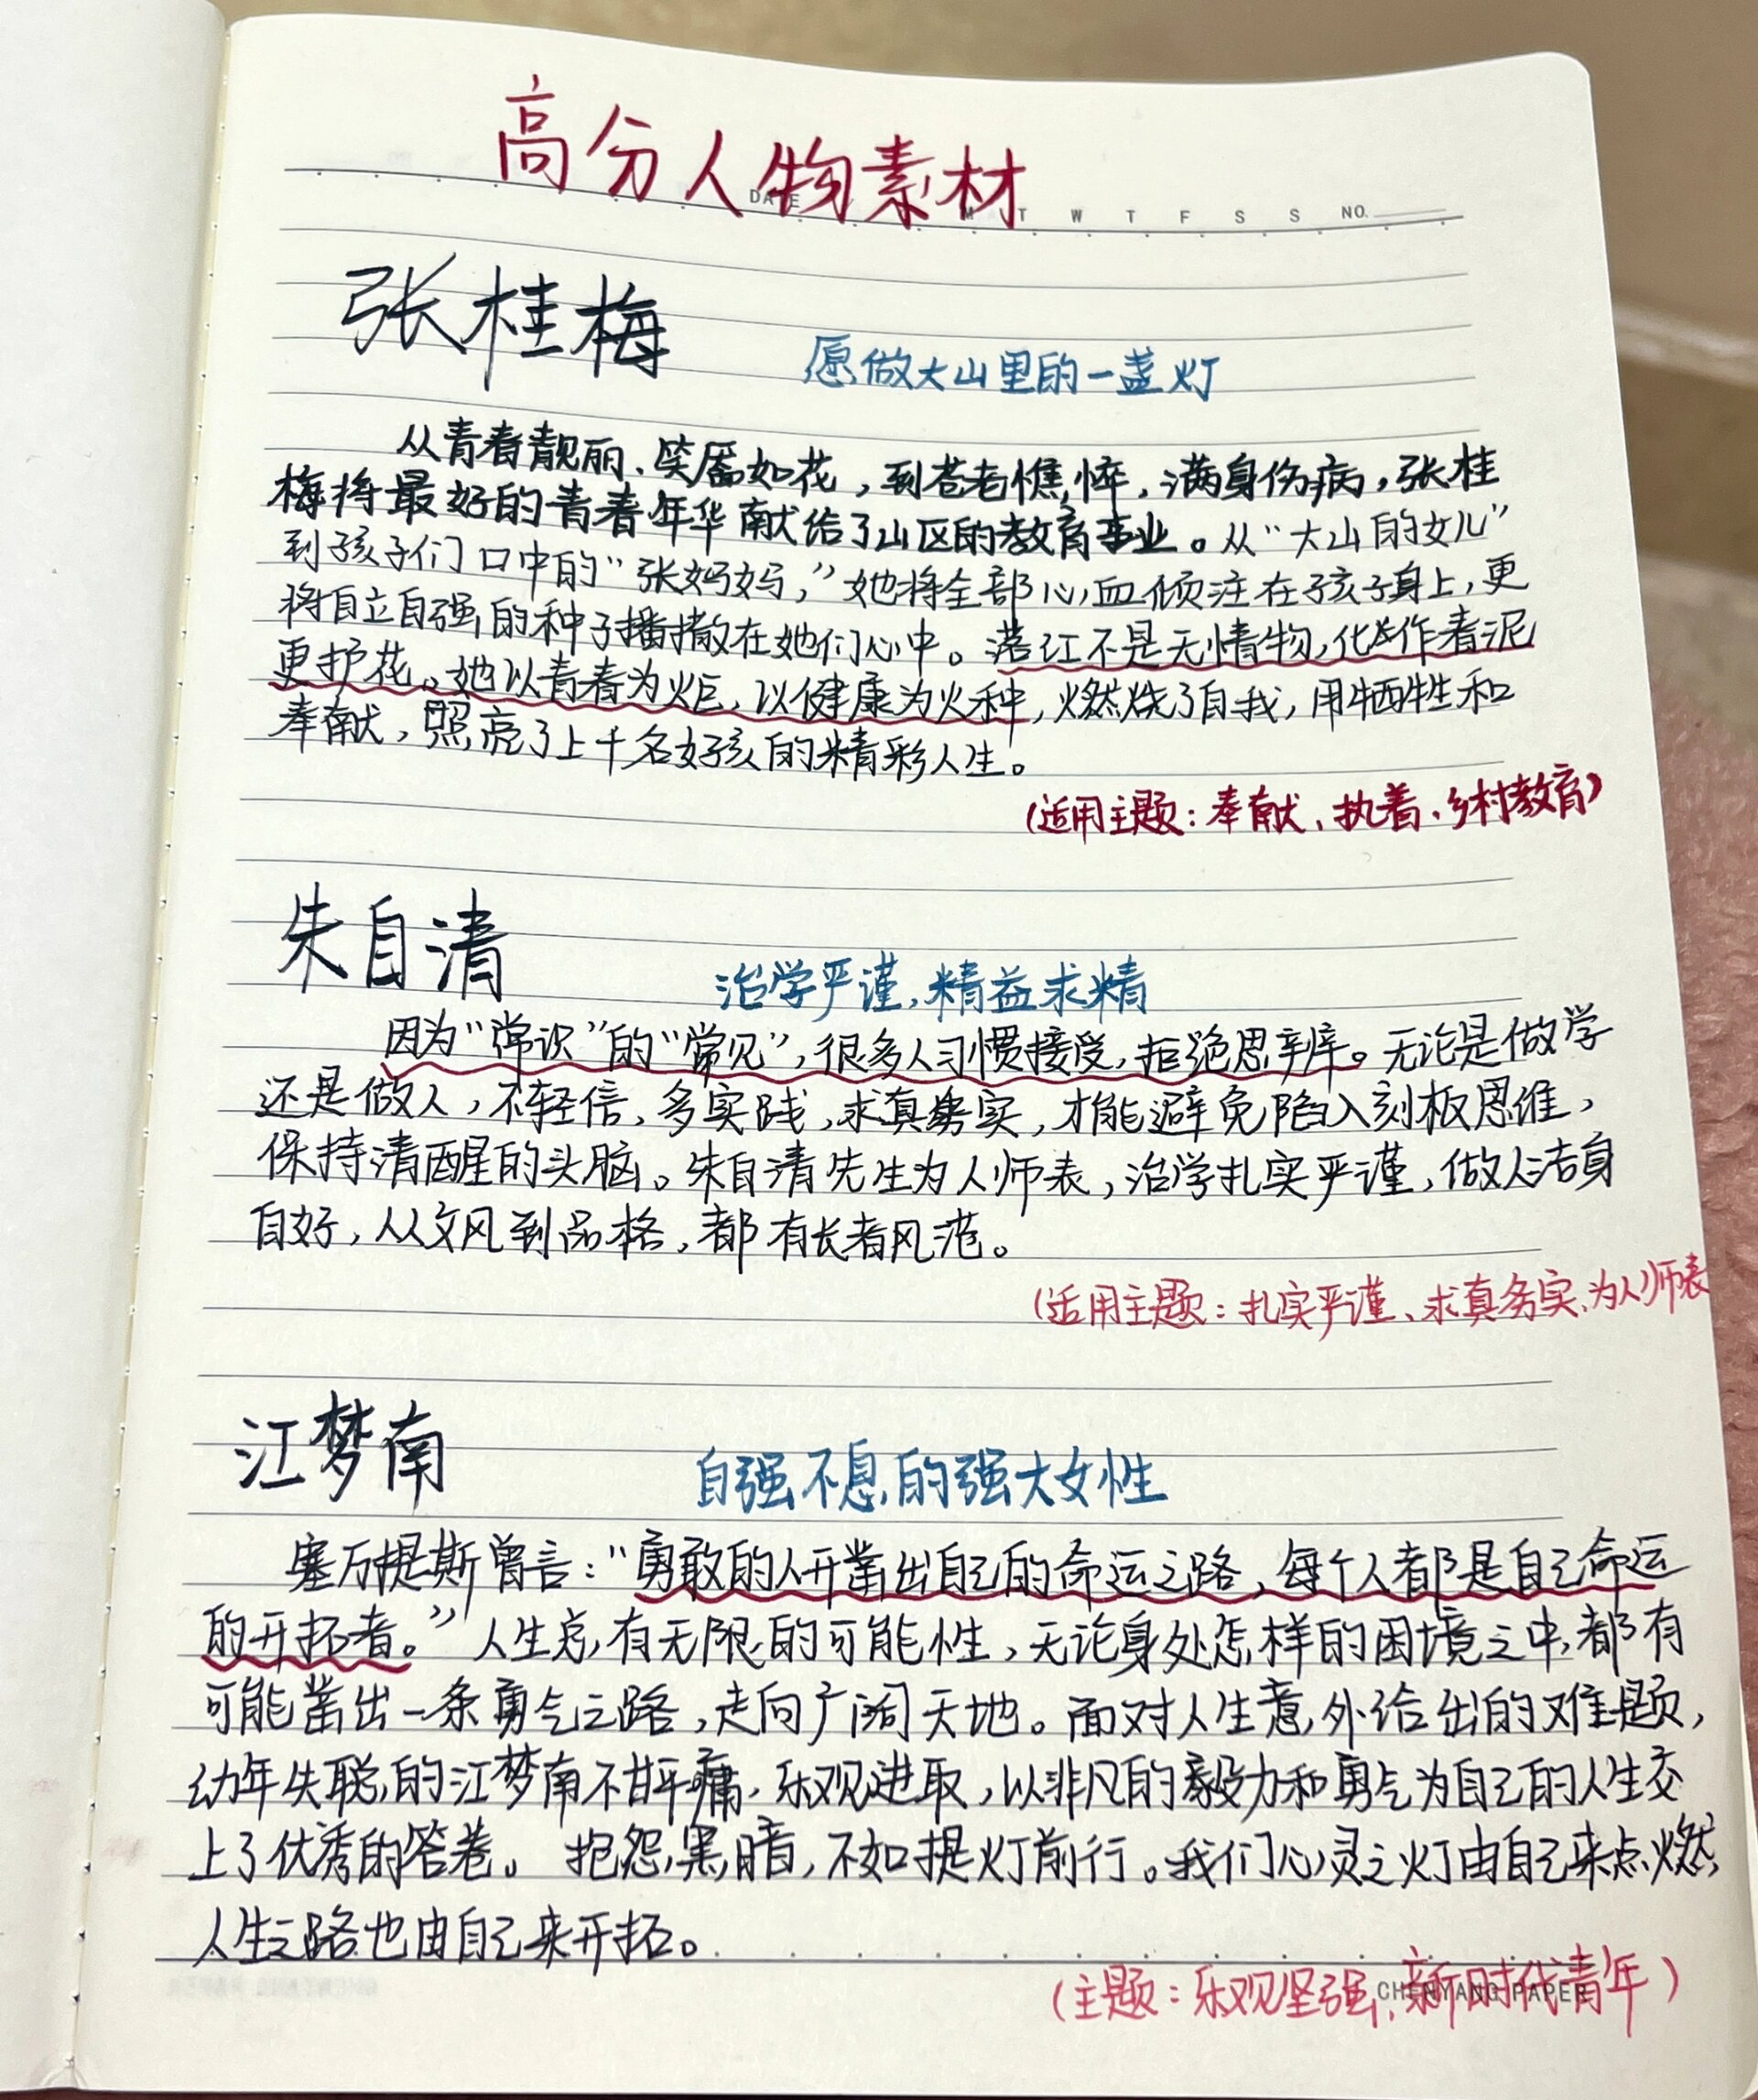 高分人物素材
DATE M T W T F S S NO.
张桂梅
愿做大山里的一盏灯
从青春靓丽、笑靥如花，到苍老憔悴，满身伤病，张桂
梅将最好的青春年华献给了山区的教育事业。从“大山的女儿”
到孩子们口中的“张妈妈，”她将全部心血倾注在孩子身上，更
将自立自强的种子播撒在她们心中。落红不是无情物，化作春泥
更护花。她以青春为炬，以健康为火种，燃烧了自我，用牺牲和
奉献，照亮了上千名女孩的精彩人生。
（适用主题：奉献、执着、乡村教育）
朱自清
治学严谨，精益求精
因为“常识”的“常见”，很多人习惯接受，拒绝思辨。无论是做学
还是做人，不轻信，多实践，求真务实，才能避免陷入刻板思维，
保持清醒的头脑。朱自清先生为人师表，治学扎实严谨，做人洁身
自好，从文风到品格，都有长者风范。
（适用主题：扎实严谨、求真务实、为人师表
江梦南
自强不息的强大女性
塞万提斯曾言：“勇敢的人开凿出自己的命运之路，每个人都是自己命运
的开拓者。”人生总有无限的可能性，无论身处怎样的困境之中，都有
可能凿出一条勇气之路，走向广阔天地。面对人生意外给出的难题，
幼年失聪的江梦南不甘平庸，乐观进取，以非凡的毅力和勇气为自己的人生交
上了优秀的答卷。抱怨黑暗，不如提灯前行。我们心灵之灯由自己来点燃，
人生之路也由自己来开拓。
（主题：乐观坚强、新时代青年）
CHENYANG PAPER